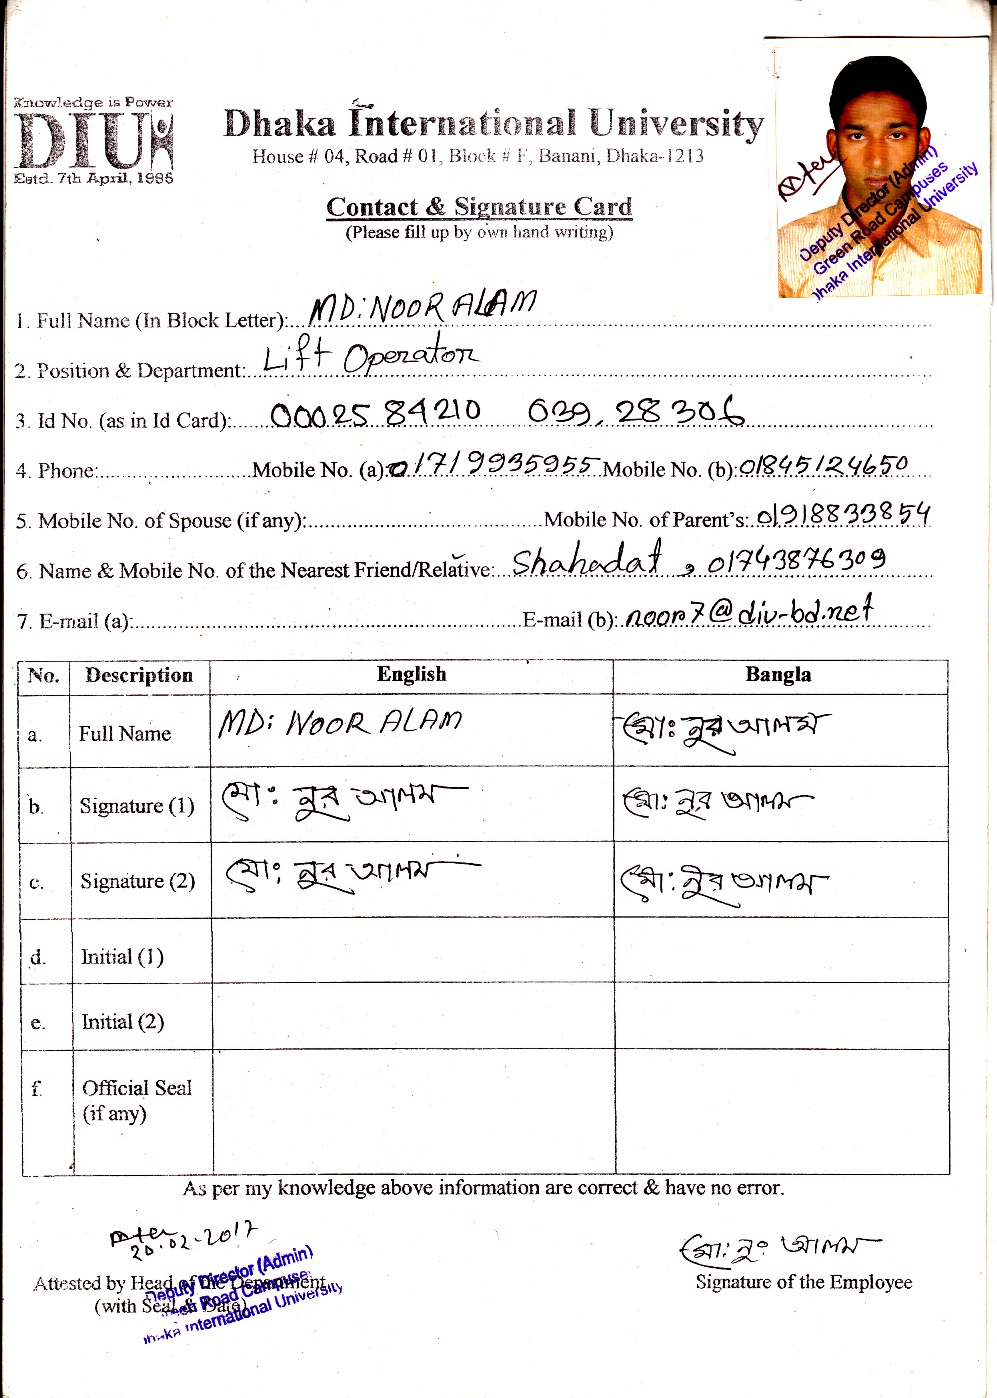 Knowledge is Power
DIU
Estd. 7th April, 1995
Dhaka International University
House # 04, Road # 01, Block # F, Banani, Dhaka-1213
Contact & Signature Card
(Please fill up by own hand writing)
Deputy Director (Admin)
Green Road Campuses
Dhaka International University
1. Full Name (In Block Letter): MD: NOOR ALAM
2. Position & Department: Lift Operator
3. Id No. (as in Id Card): 0002584210 039, 28306
4. Phone: Mobile No. (a): 01719935955 Mobile No. (b): 01845124650
5. Mobile No. of Spouse (if any): Mobile No. of Parent's: 01918833854
6. Name & Mobile No. of the Nearest Friend/Relative: Shahadat, 01743876309
7. E-mail (a): E-mail (b): noor7@diu-bd.net
No. Description English Bangla
a. Full Name MD: NOOR ALAM মো: নুর আলম
b. Signature (1) মো: নুর আলম মো: নুর আলম
c. Signature (2) মো: নুর আলম মো: নুর আলম
d. Initial (1)
e. Initial (2)
f. Official Seal (if any)
As per my knowledge above information are correct & have no error.
20.02.2017
Attested by Head of the Department
(with Seal & Date)
Deputy Director (Admin)
Green Road Campuses
Dhaka International University
মো: নুর আলম
Signature of the Employee